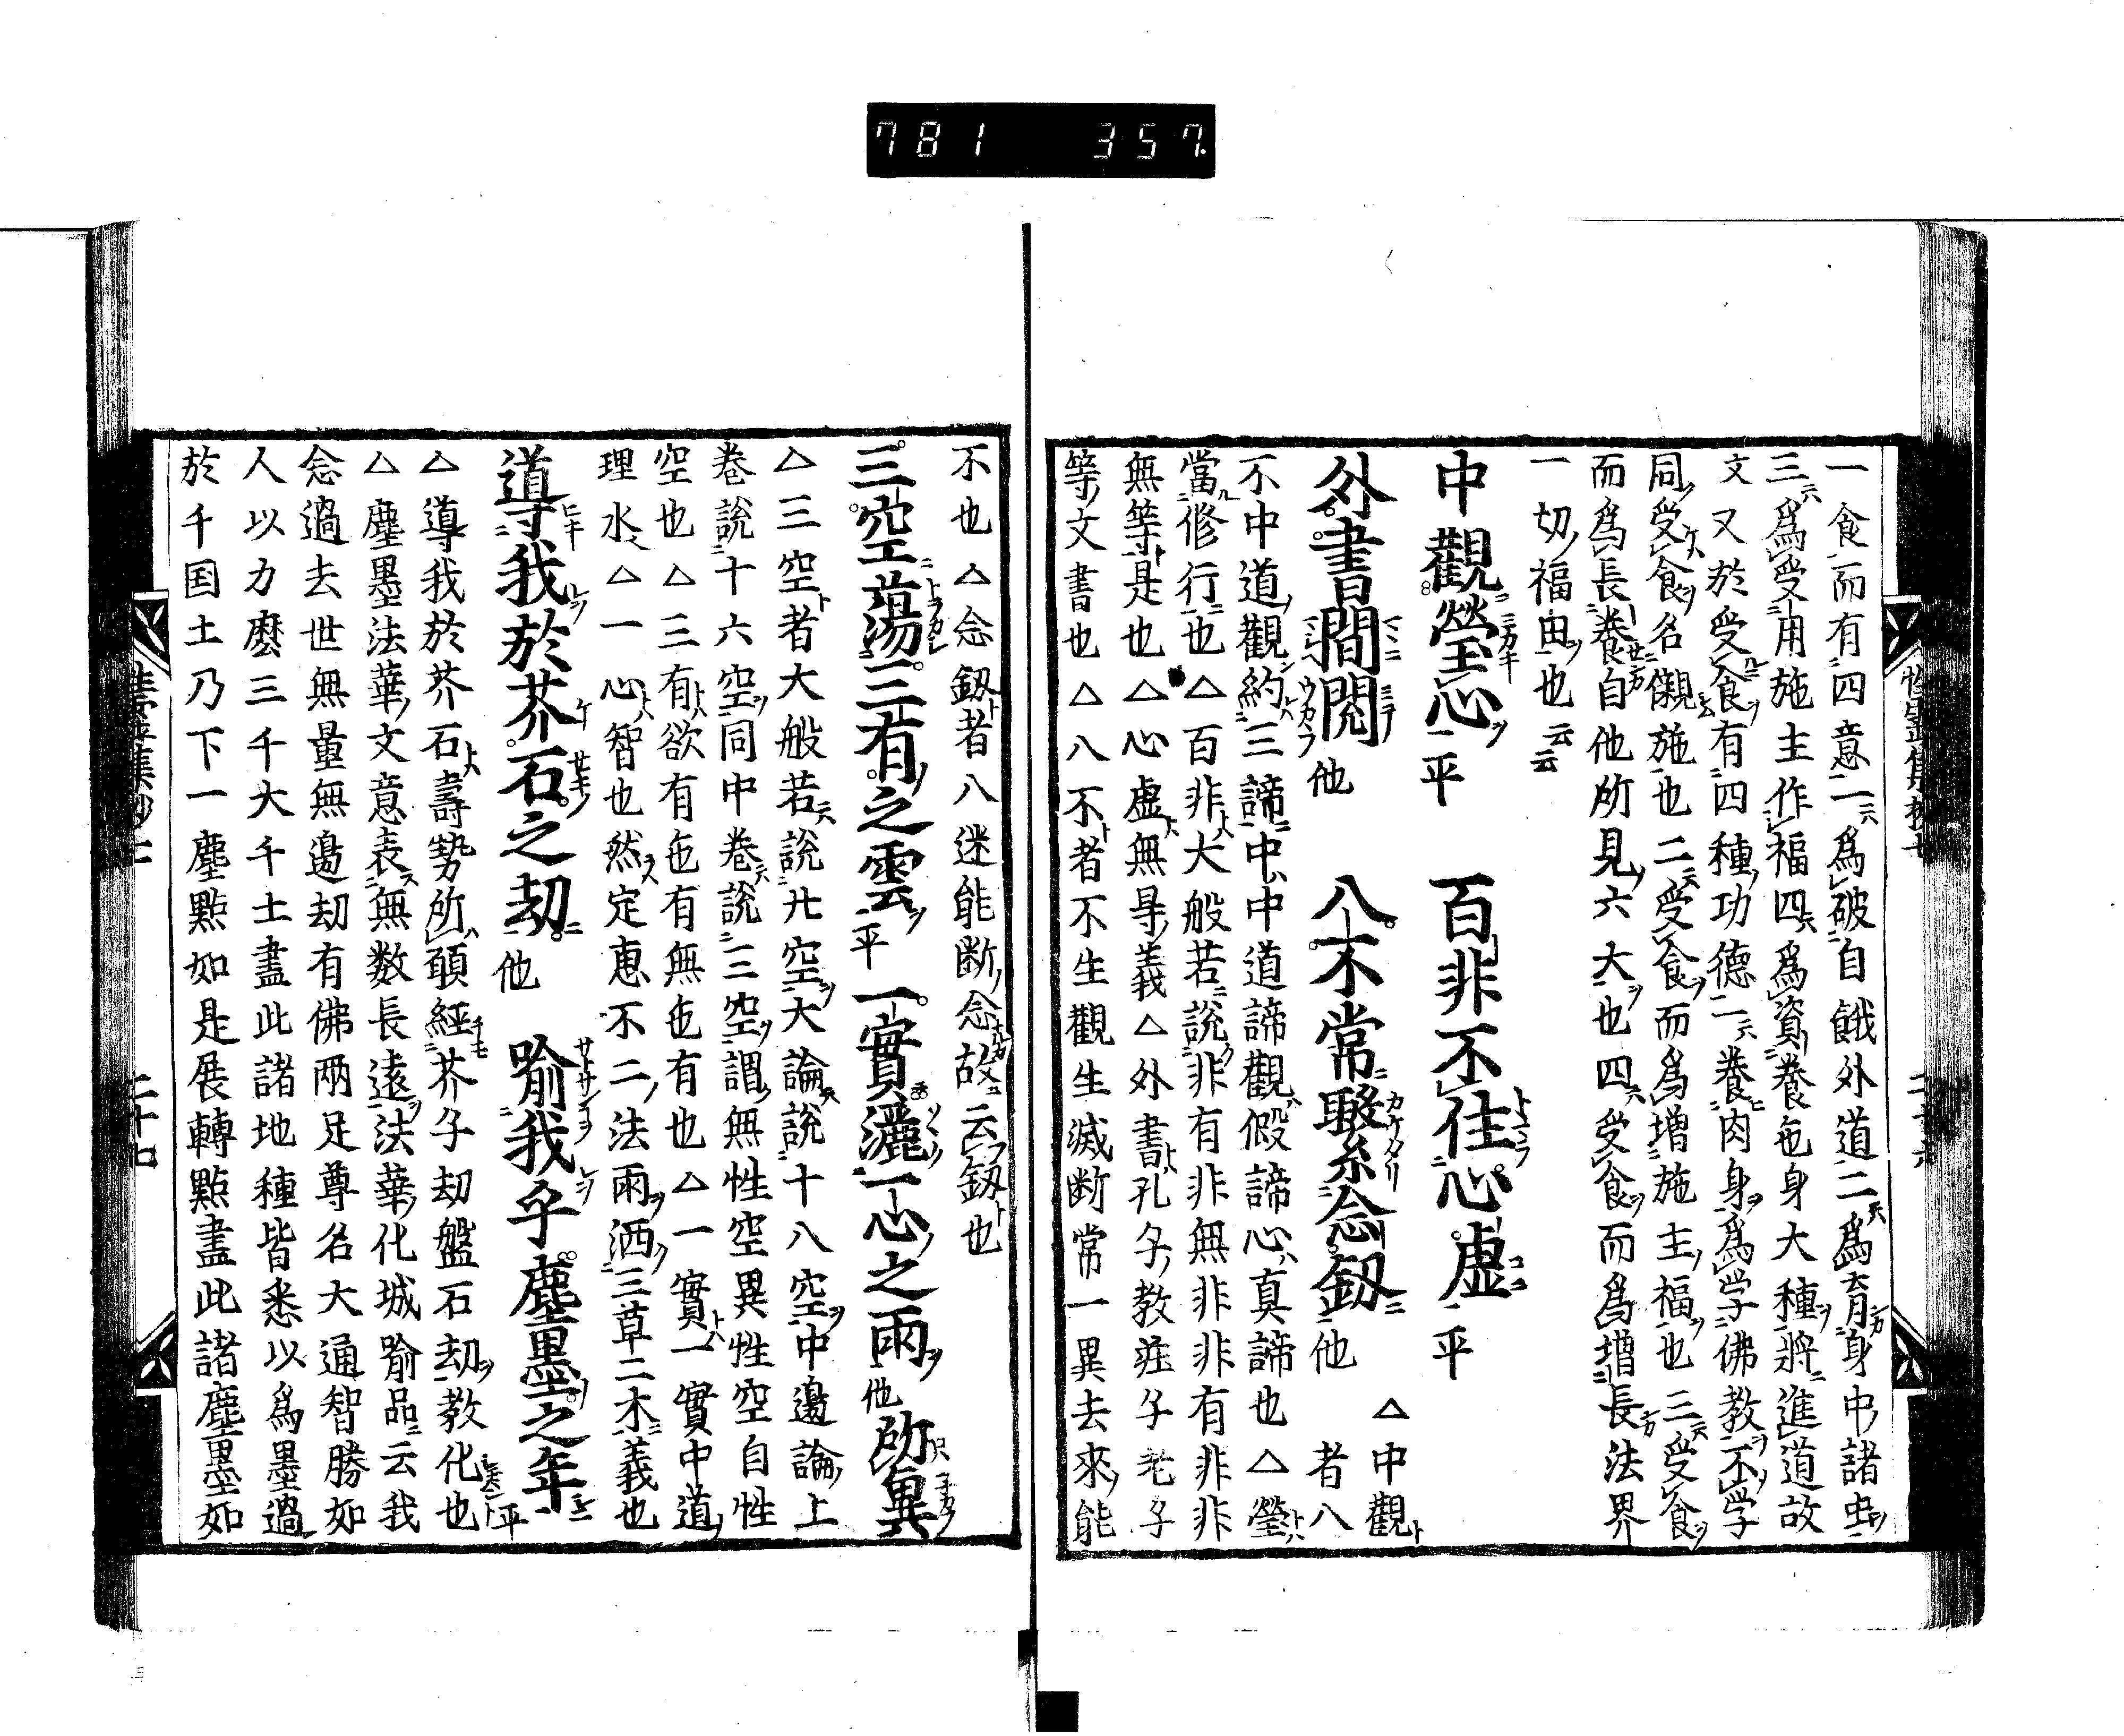 781 357
一食而有四意一爲破自餓外道二爲育身中諸虫
三爲受用施主作福四爲資養色身大種將進道故
文又於受食有四種功德一養肉身爲学佛教不学
同受食名儭施也二受食而爲增施主福也三受食
而爲長養自他所見六大也四受食而爲增長法界
一切福由也云云
中觀瑩心平 百非不住心虚平 △中觀
外書間閲他 八不常繫念釼他 者八
不中道觀約三諦中中道諦觀假諦心真諦也△瑩
當修行也△百非大般若説非有非無非非有非非
無等是也△心虚無㝵義△外書孔子教荘子老子
等文書也△八不者不生觀生滅断常一異去來能
不也△念釼者八迷能断念故云釼也
三空蕩三有之雲平 一實灑一心之雨他 所冀
△三空者大般若説廿空大論説十八空中邊論上
巻説十六空同中巻説三空謂無性空異性空自性
空也△三有欲有色有無色有也△一實一實中道
理水△一心智也然定恵不二法雨洒三草二木義也
導我於芥石之劫他 喻我乎塵墨之年平
△導我於芥石壽勢所頤經芥子劫盤石劫教化也
△塵墨法華文意表無数長遠法華化城喻品云我
念過去世無量無邊劫有佛兩足尊名大通智勝如
人以力麽三千大千土盡此諸地種皆悉以爲墨過
於千国土乃下一塵點如是展轉點盡此諸塵墨如